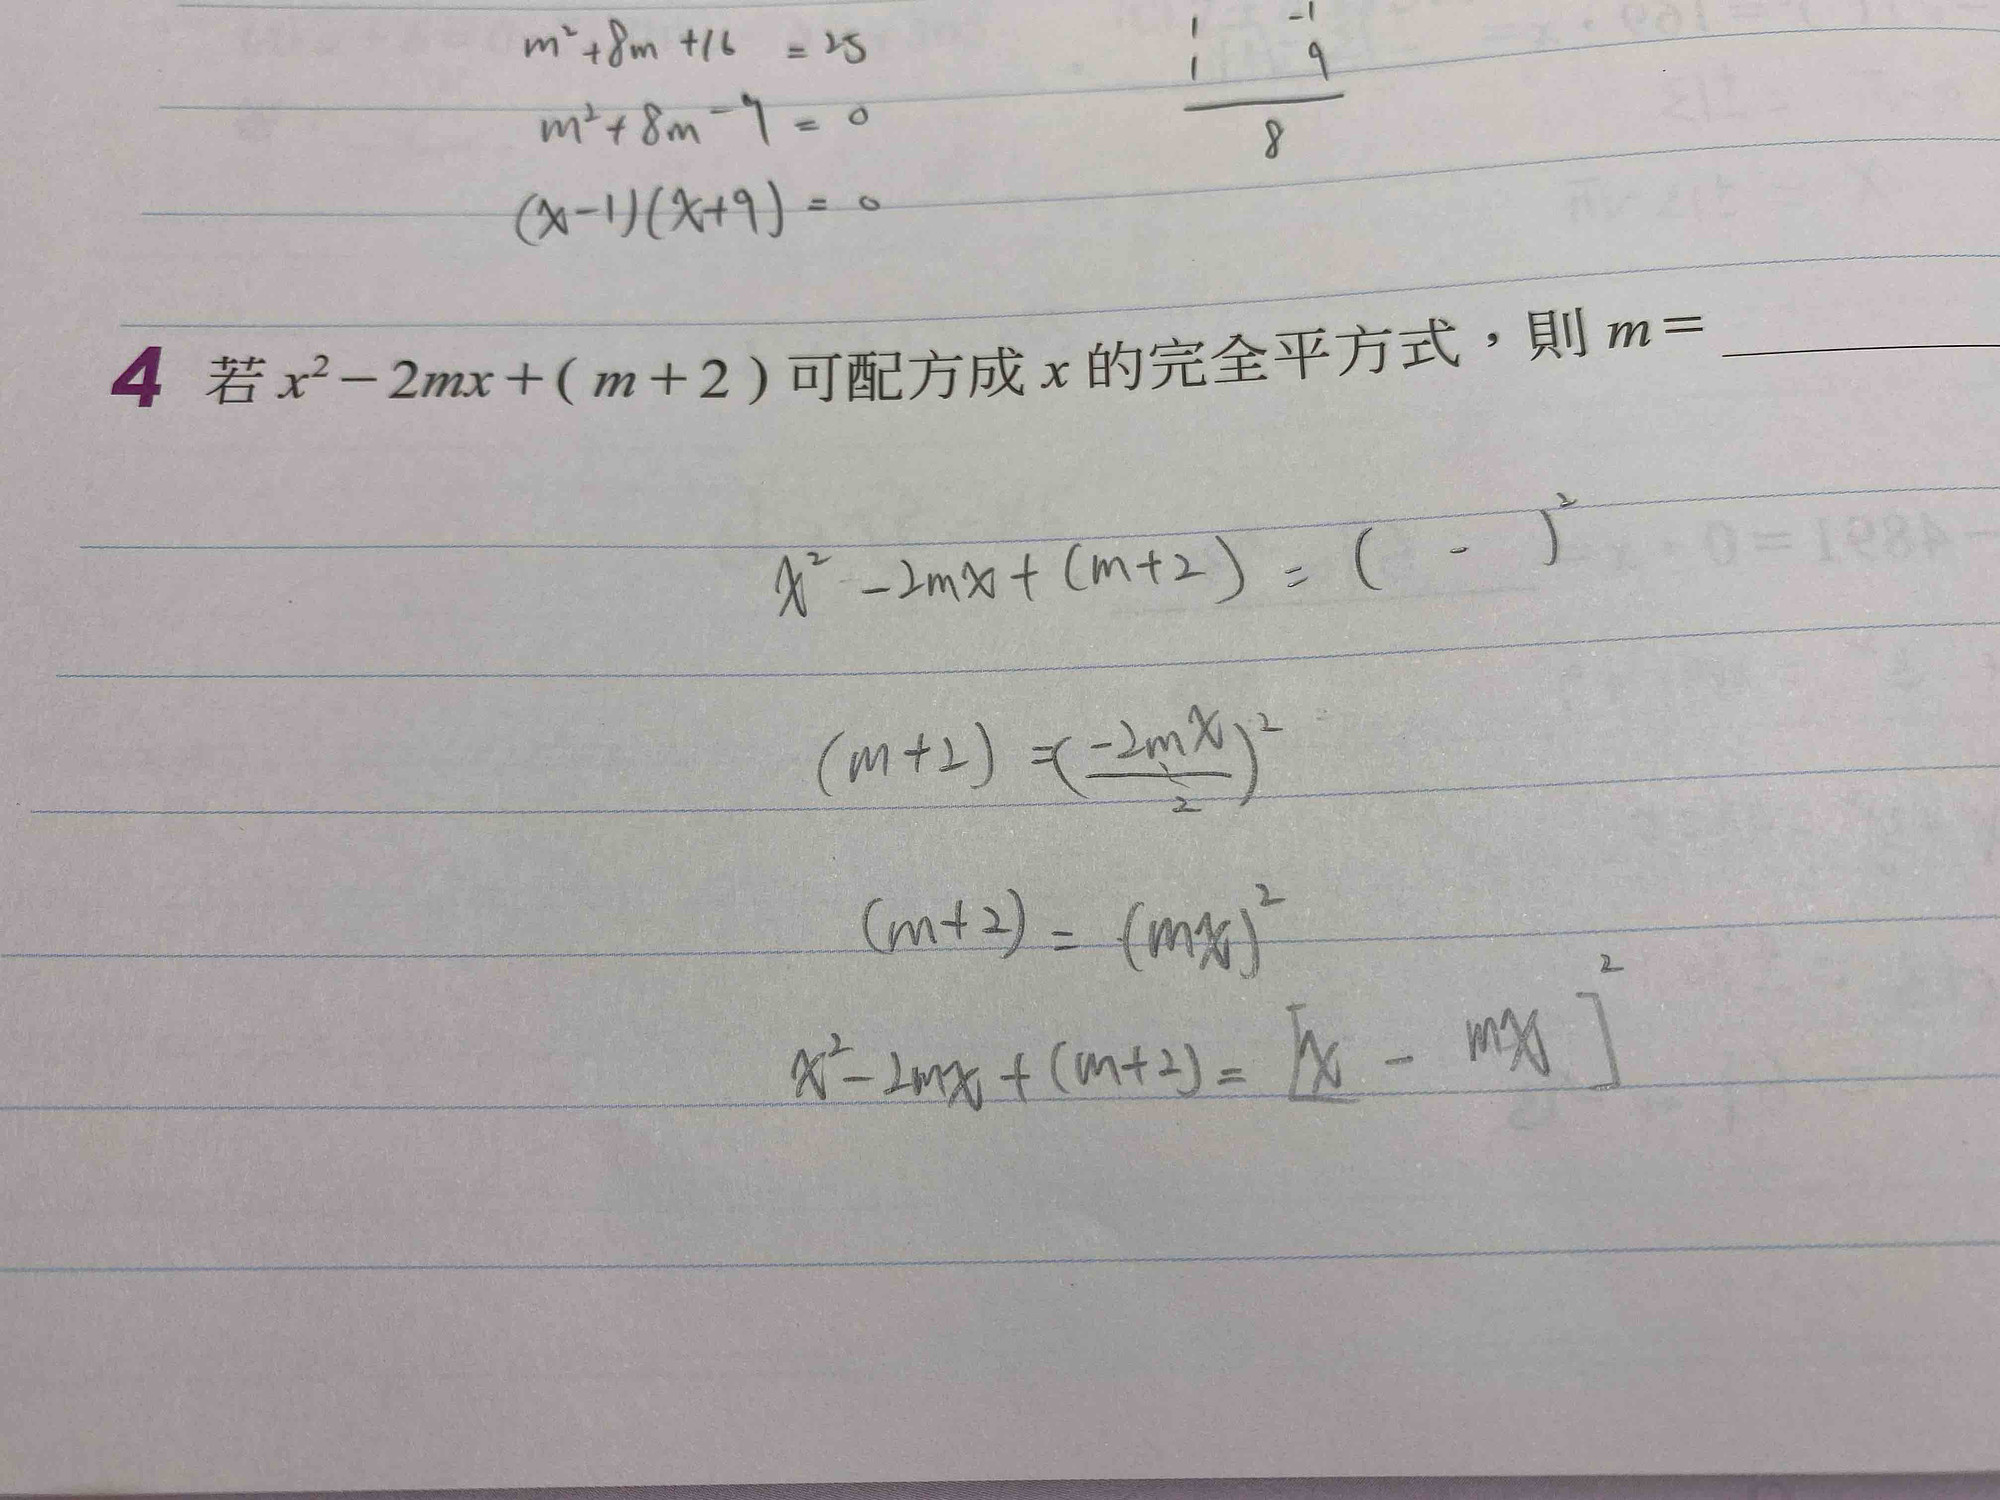 m²+8m+16 = 25
m²+8m-9 = 0
(x-1)(x+9) = 0
1 -1
1 9
8
4 若 x²－2mx＋( m＋2 ) 可配方成 x 的完全平方式，則 m＝
x² -2mx+(m+2) = ( - )²
(m+2) =(-2mx/2)²
(m+2) = (mx)²
x²-2mx+(m+2)= [x - mx]²